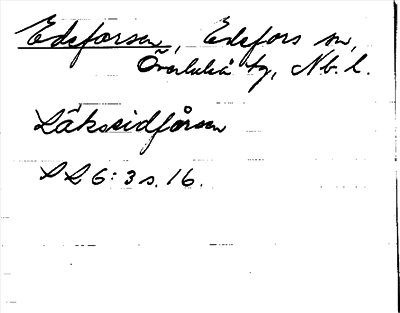 Edeforsen, Edefors sn,
Överluleå tg, Nb. l.
Läkssidfårsen
S L 6:3 s. 16.